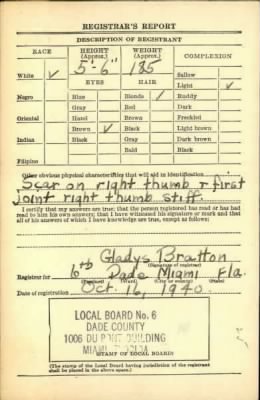 REGISTRAR'S REPORT
DESCRIPTION OF REGISTRANT
RACE HEIGHT (Approx.) WEIGHT (Approx.) COMPLEXION
White ✓ 5'-6" 185 Sallow
EYES HAIR Light ✓
Negro Blue Blonde ✓ Ruddy
Gray Red Dark
Oriental Hazel Brown Freckled
Brown ✓ Black Light brown
Indian Black Gray Dark brown
Bald Black
Filipino
Other obvious physical characteristics that will aid in identification
Scar on right thumb & first
joint right thumb stiff.
I certify that my answers are true; that the person registered has read or has had
read to him his own answers; that I have witnessed his signature or mark and that
all of his answers of which I have knowledge are true, except as follows:
Gladys Bratton
(Signature of registrar)
Registrar for 16th Dade Miami Fla.
(Precinct) (Ward) (City or county) (State)
Date of registration Oct. 16, 1940
LOCAL BOARD No. 6
DADE COUNTY
1006 DU PONT BUILDING
MIAMI, FLORIDA
(STAMP OF LOCAL BOARD)
(The stamp of the Local Board having jurisdiction of the registrant
shall be placed in the above space.)